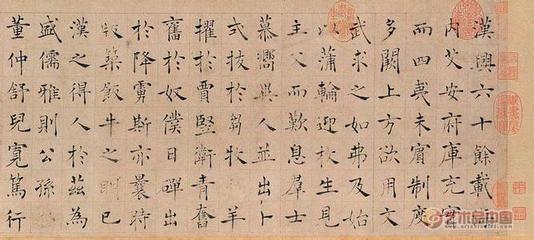 漢興六十餘載
內艾安府庫充實
而四夷未賓制度
多闕上方欲用文
武求之如弗及始
以蒲輪迎枚生見
主父而歎息群士
慕嚮異人並出卜
式拔於芻牧 羊
擢於賈豎衛青奮
舊於奴僕日磾出
於降虜斯亦曩時
版築飯牛之朋已
漢之得人於茲為
盛儒雅則公孫
董仲舒兒寬篤行
艺术品中国